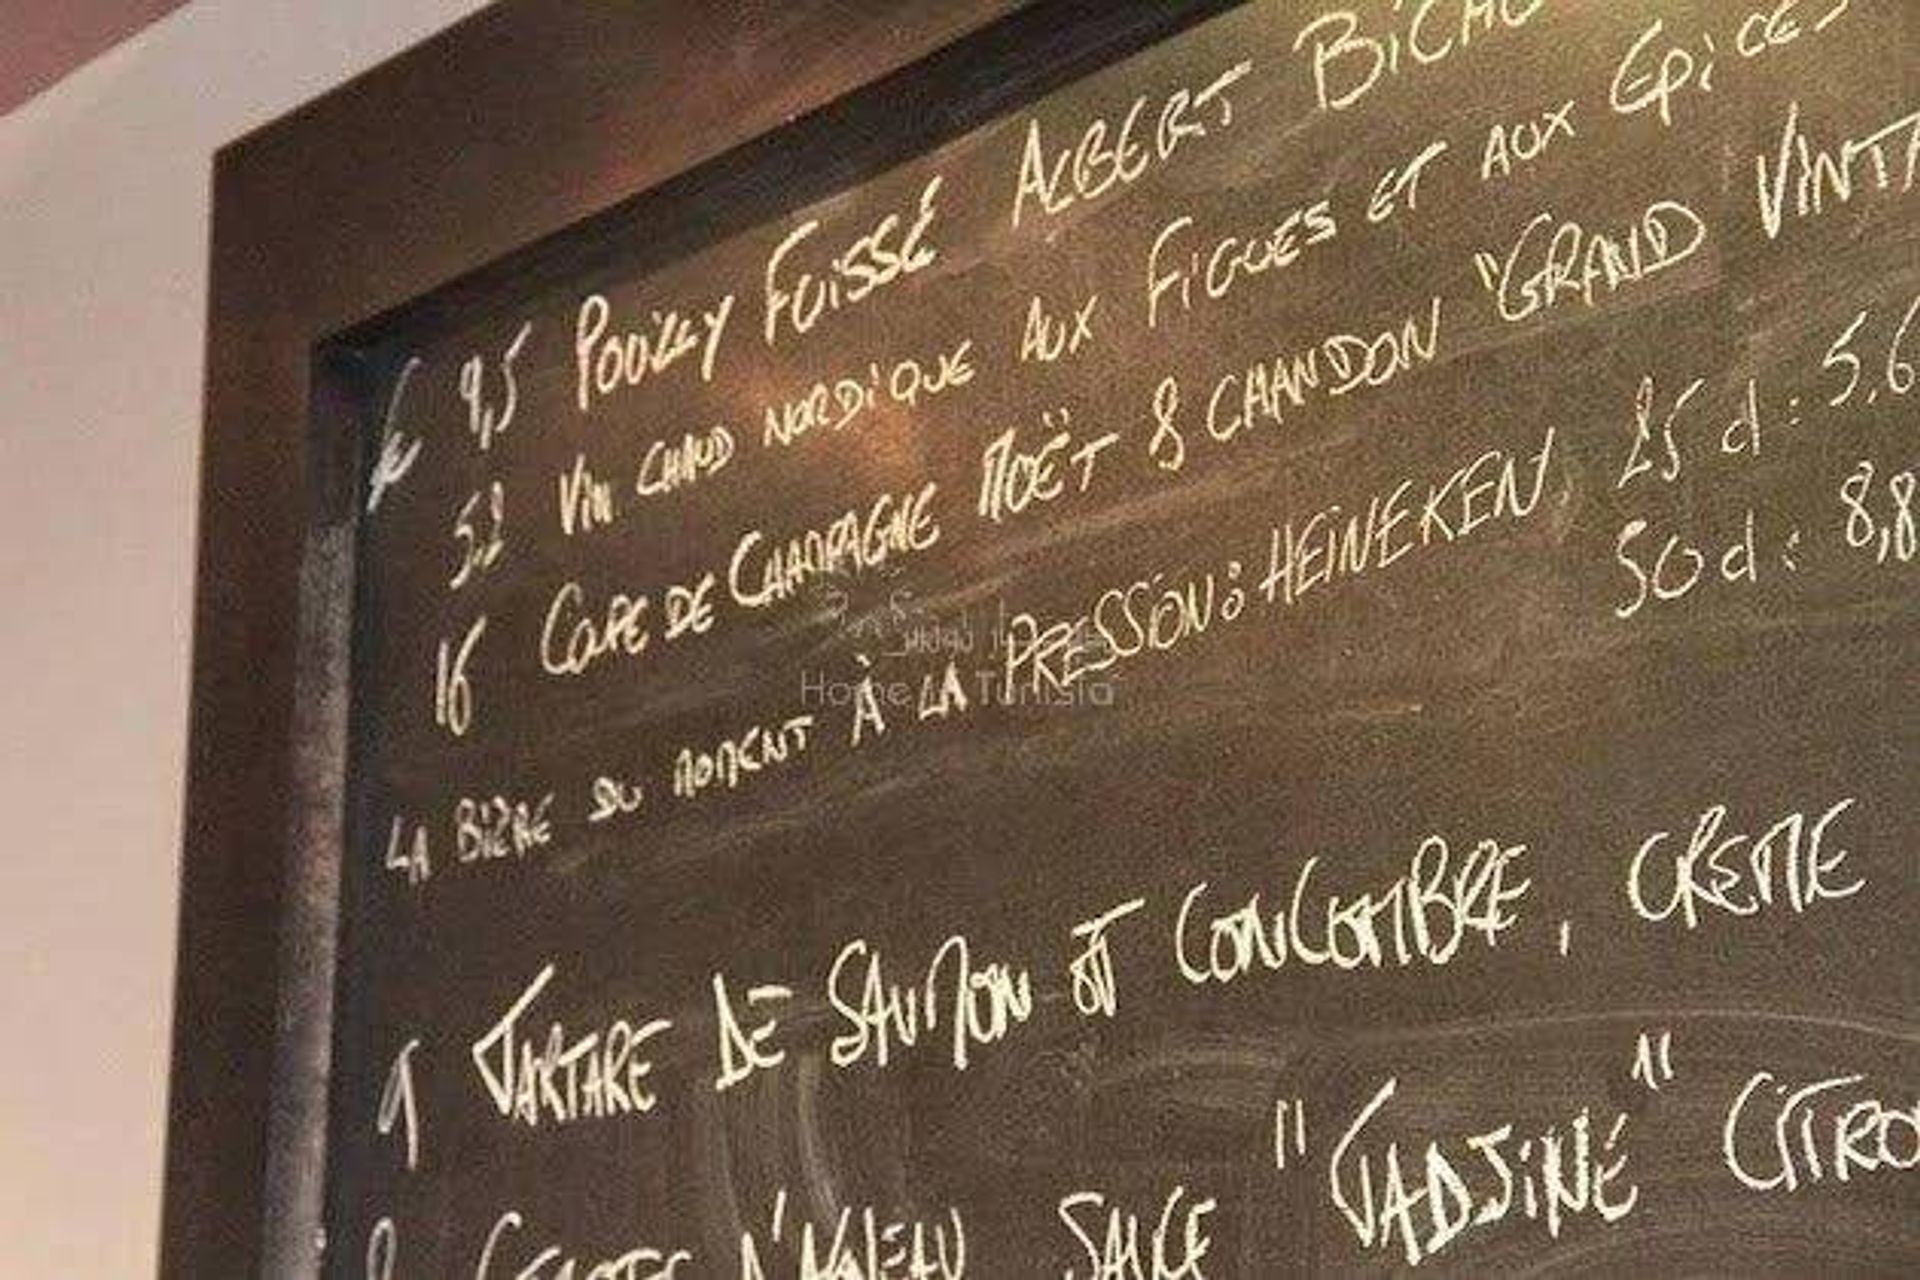 € 9,5 POUILLY FUISSÉ ALBERT
5,2 VIN CHAUD NORDIQUE AUX FIGUES ET AUX EPICES
16 COUPE DE CHAMPAGNE MOËT & CHANDON "GRAND
LA BIÈRE DU MOMENT À LA PRESSION: HEINEKEN, 25 d: 5,6
50 d: 8,8
Home in Tunisia
9 TARTARE DE SAUMON ET CONCOMBRE, CREME
D'AGNEAU SAUCE "TADJINE"